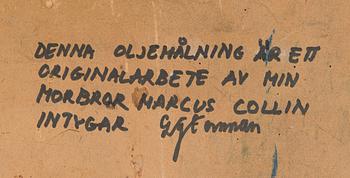 DENNA OLJEMÅLNING ÄR ETT
ORIGINALARBETE AV MIN
MORBROR MARCUS COLLIN
INTYGAR